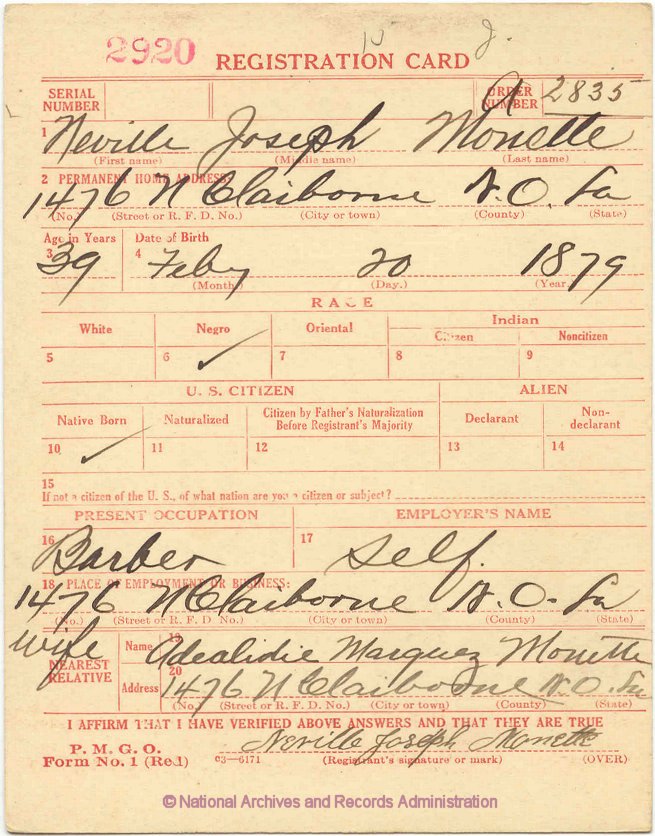 2920 REGISTRATION CARD
SERIAL NUMBER ORDER NUMBER A 2835
1 Neville Joseph Monette
(First name) (Middle name) (Last name)
2 PERMANENT HOME ADDRESS:
1476 N Claiborne N.O. La
(No.) (Street or R. F. D. No.) (City or town) (County) (State)
Age in Years Date of Birth
3 39 4 Feby 20 1879
(Month) (Day.) (Year)
RACE
White Negro Oriental Indian
Citizen Noncitizen
5 6 ✓ 7 8 9
U. S. CITIZEN ALIEN
Native Born Naturalized Citizen by Father's Naturalization Before Registrant's Majority Declarant Non-declarant
10 ✓ 11 12 13 14
15
If not a citizen of the U. S., of what nation are you a citizen or subject?
PRESENT OCCUPATION EMPLOYER'S NAME
16 Barber 17 Self.
18 PLACE OF EMPLOYMENT OR BUSINESS:
1476 N Claiborne N.O. La
(No.) (Street or R. F. D. No.) (City or town) (County) (State)
wife
NEAREST RELATIVE Name 19 Adealidie Marquez Monette
Address 20 1476 N Claiborne N.O. La
(No.) (Street or R. F. D. No.) (City or town) (County) (State)
I AFFIRM THAT I HAVE VERIFIED ABOVE ANSWERS AND THAT THEY ARE TRUE
P. M. G. O. Neville Joseph Monette
Form No. 1 (Red) c3—6171 (Registrant's signature or mark) (OVER)
© National Archives and Records Administration